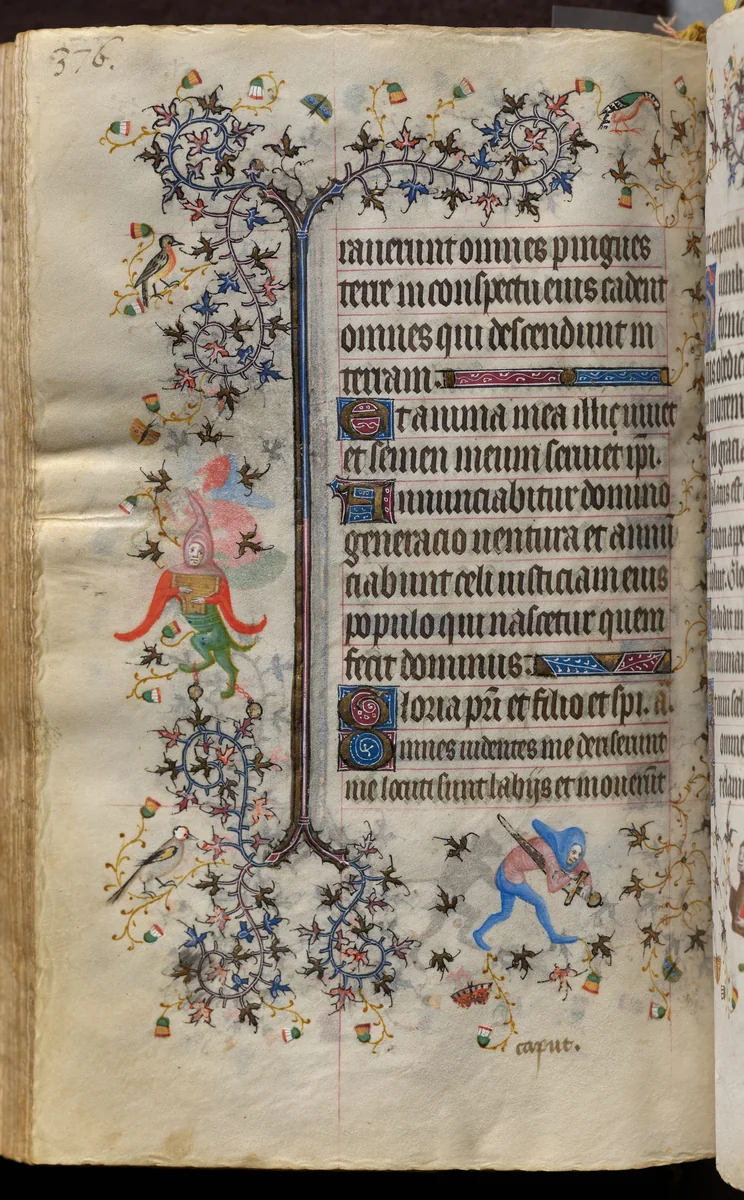 376.
rauerunt omnes pingues
terre in conspectu eius cadent
omnes qui descendunt in
terram.
Et anima mea illi uiuet
et semen meum seruiet ipi.
Annunciabitur domino
generacio uentura et annū
ciabunt celi iusticiam eius
populo qui nascetur quem
fecit dominus.
Gloria pr̄i et filio et spi. a.
Omnes uidentes me deriserunt
me locuti sunt labijs et mouerūt
caput.